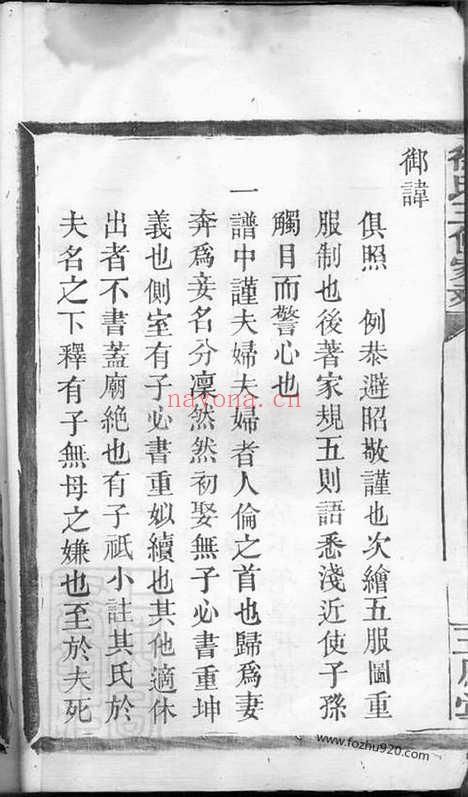 御諱
俱照　例恭避昭敬謹也次繪五服圖重
服制也後著家規五則語悉淺近使子孫
觸目而警心也
一譜中謹夫婦夫婦者人倫之首也歸爲妻
奔爲妾名分凛然然初娶無子必書重坤
義也側室有子必書重姒續也其他適休
出者不書蓋廟絶也有子祇小註其氏於
夫名之下釋有子無母之嫌也至於夫死
nayona.cn
www.fozhu920.com